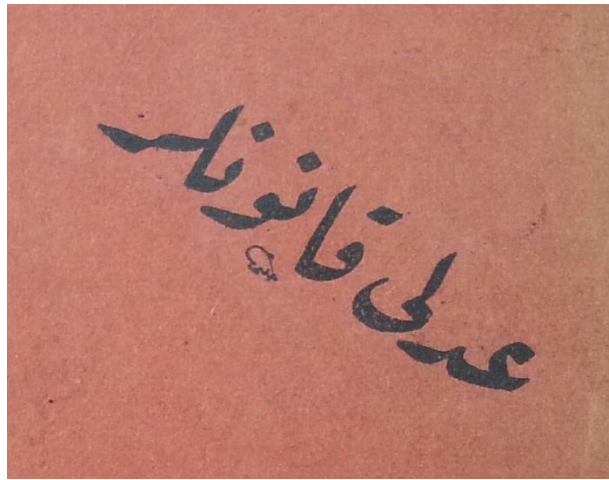 عدلی قانونلر